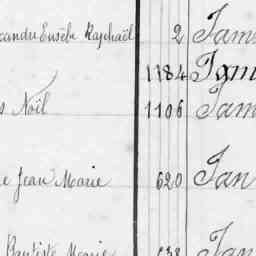 xandre Eusèbe Raphaël 2 Jam
1184 Jam
s Noël 1106 Jam
e Jean Marie 620 Jan
Baptiste Marie 638 Jan